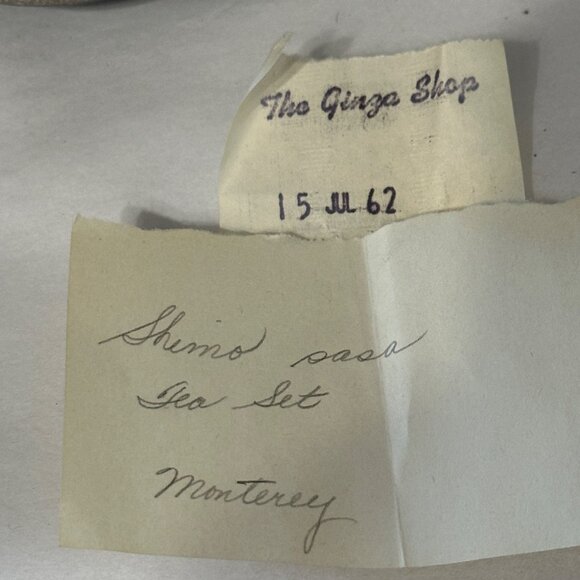 The Ginza Shop
15 JUL 62
Shimo sasa
Tea Set
Monterey